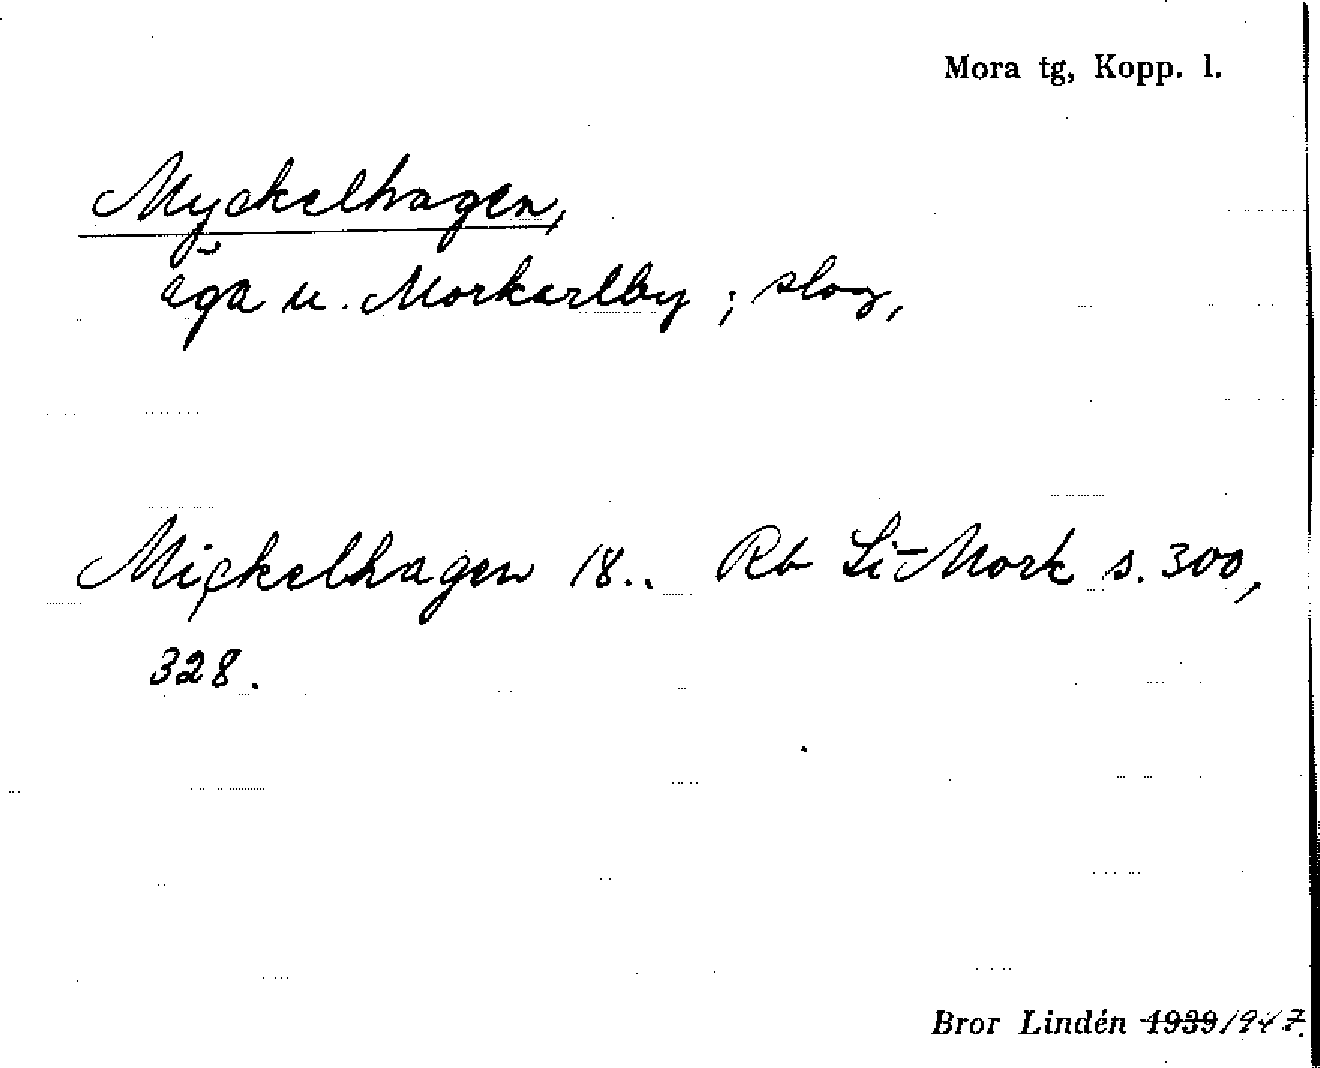 Mora tg, Kopp. l.
Myckelhagen,
äga u. Morkarlby; slog,
Mickelhagen 18.. Rb Li-Mork s. 300,
328.
Bror Lindén 1939 1947.